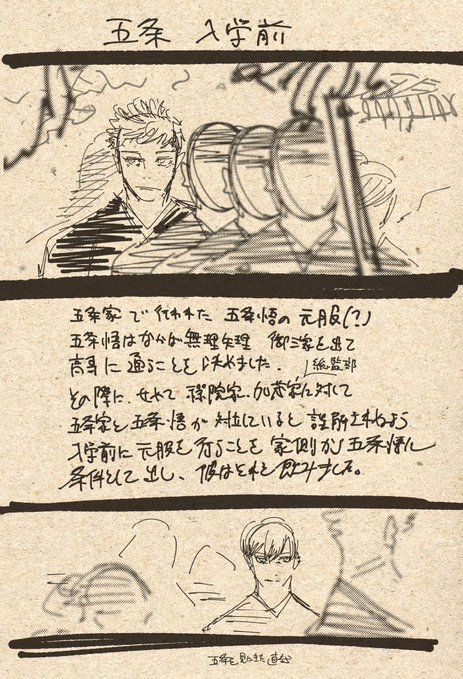 五条 入学前
五条家で行われた 五条悟の元服(?)
五条悟はなかば無理矢理 御三家を出て
高専に通うことを決めました。
総監部
その際に、せめて 禪院家・加茂家に対して
五条家と五条悟が対立していると 誤解されぬよう
入学前に元服を行うことを 家側が五条悟に
条件として出し、彼はそれを飲みました。
五条を見にきた直哉